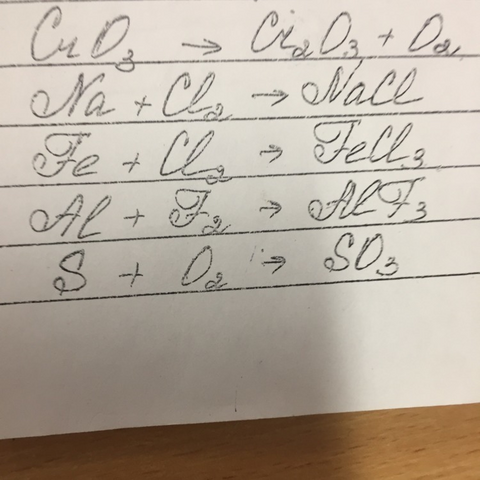 CrO₃ → Cr₂O₃ + O₂
Na + Cl₂ → NaCl
Fe + Cl₂ → FeCl₃
Al + F₂ → AlF₃
S + O₂ → SO₃